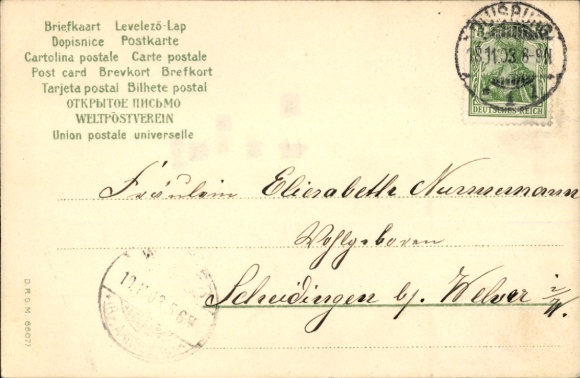 Briefkaart Levelező-Lap
Dopisnice Postkarte
Cartolina postale Carte postale
Post card Brevkort Brefkort
Tarjeta postal Bilhete postal
ОТКРЫТОЕ ПИСЬМО
WELTPOSTVEREIN
Union postale universelle
11.03. 8-9N
DEUTSCHES REICH
Fräulein Elisabeth Nurmemann
Wohlgeboren
Scheidingen bj. Welver i/W.
D.R.G.M. 88077